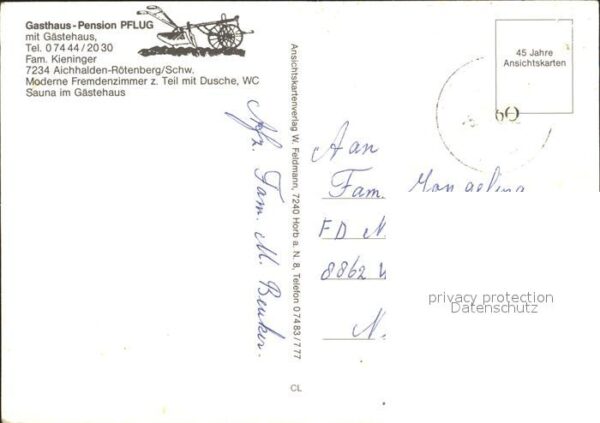 Gasthaus-Pension PFLUG
mit Gästehaus,
Tel. 0 74 44 / 20 30
Fam. Kieninger
7234 Aichhalden-Rötenberg/Schw.
Moderne Fremdenzimmer z. Teil mit Dusche, WC
Sauna im Gästehaus
Afz. Fam. M. Beuker.
Ansichtskartenverlag W. Feldmann, 7240 Horb a. N. 8, Telefon 0 74 83 / 7 77
CL
45 Jahre
Ansichtskarten
60
Aan
Fam.
FD
8862
N.
privacy protection
Datenschutz